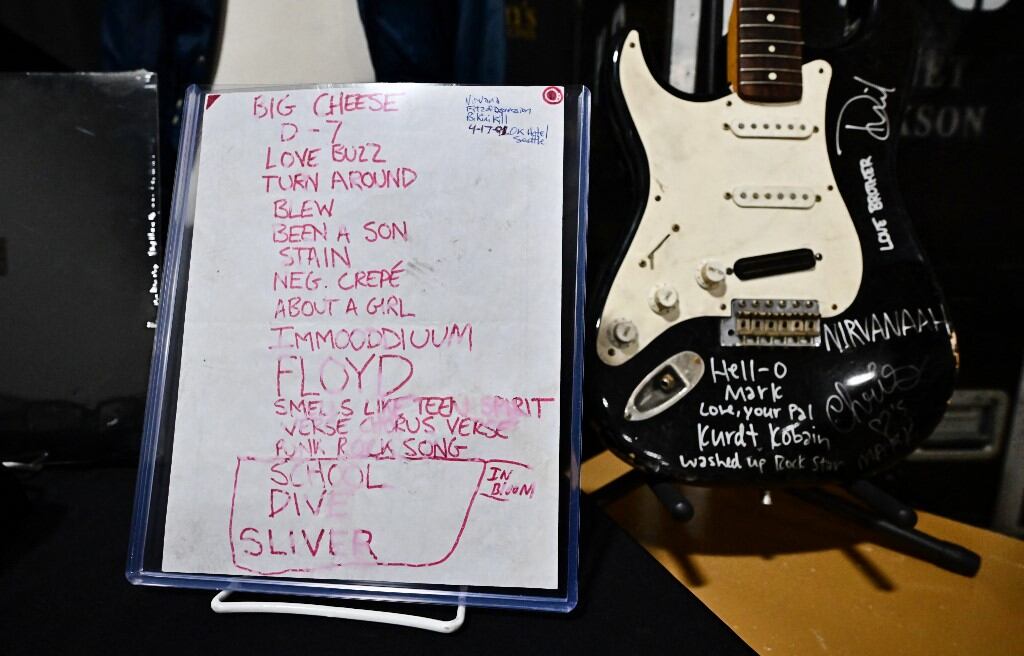 BIG CHEESE
D-7
LOVE BUZZ
TURN AROUND
BLEW
BEEN A SON
STAIN
NEG. CREPÉ
ABOUT A GIRL
IMMOODDIUUM
FLOYD
SMELLS LIKE TEEN SPIRIT
VERSE CHORUS VERSE
PUNK ROCK SONG
SCHOOL
DIVE
SLIVER
IN
BLOOM
Nirvana
Fitz of Depression
Bikini Kill
4-17-91 OK Hotel
Seattle
LOVE BROTHER
NIRVANAAH
Hell-O
Mark
Love, your Pal
Kurdt Kobain
washed up Rock Star
SON